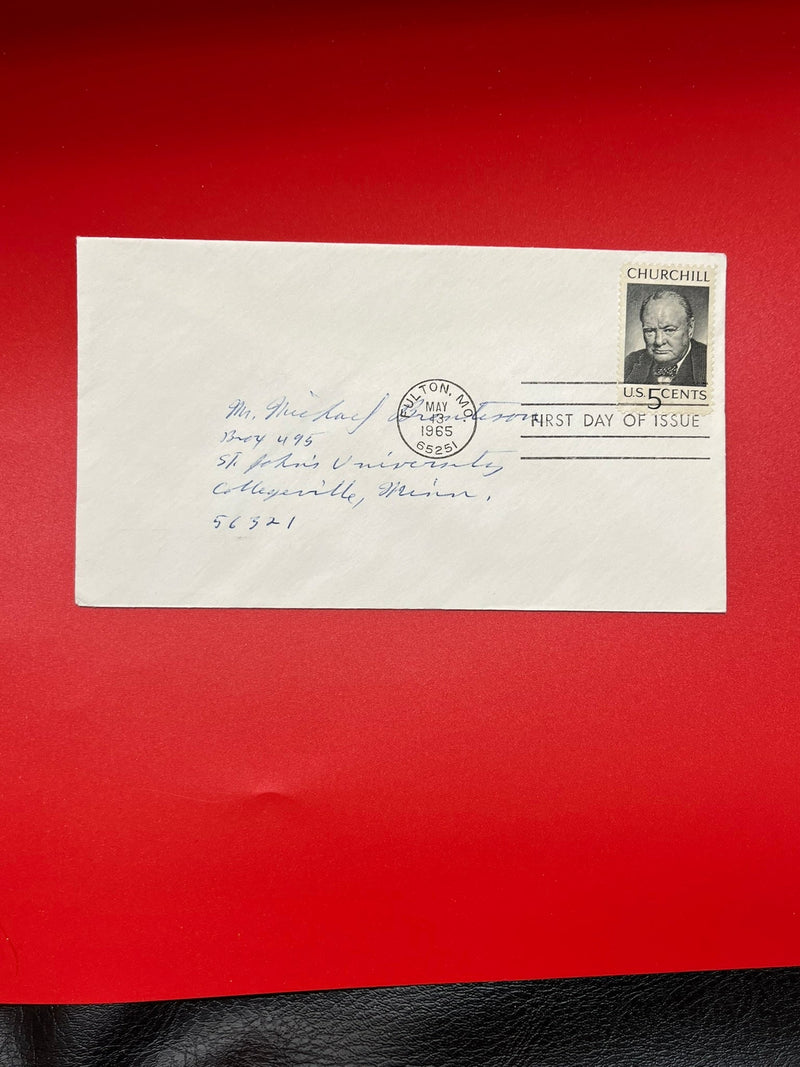 CHURCHILL
U.S. 5 CENTS
FULTON, MO.
MAY
13
1965
65251
FIRST DAY OF ISSUE
Mr. Michael
Box 495
St. John's University
Collegeville, Minn.
56321